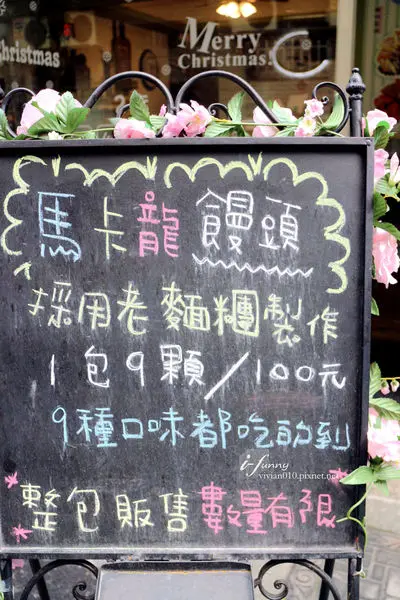 Merry
Christmas!
Christmas
馬卡龍饅頭
採用老麵糰製作
1包9顆/100元
9種口味都吃的到
i-funny
vivian010.pixnet.net
整包販售數量有限